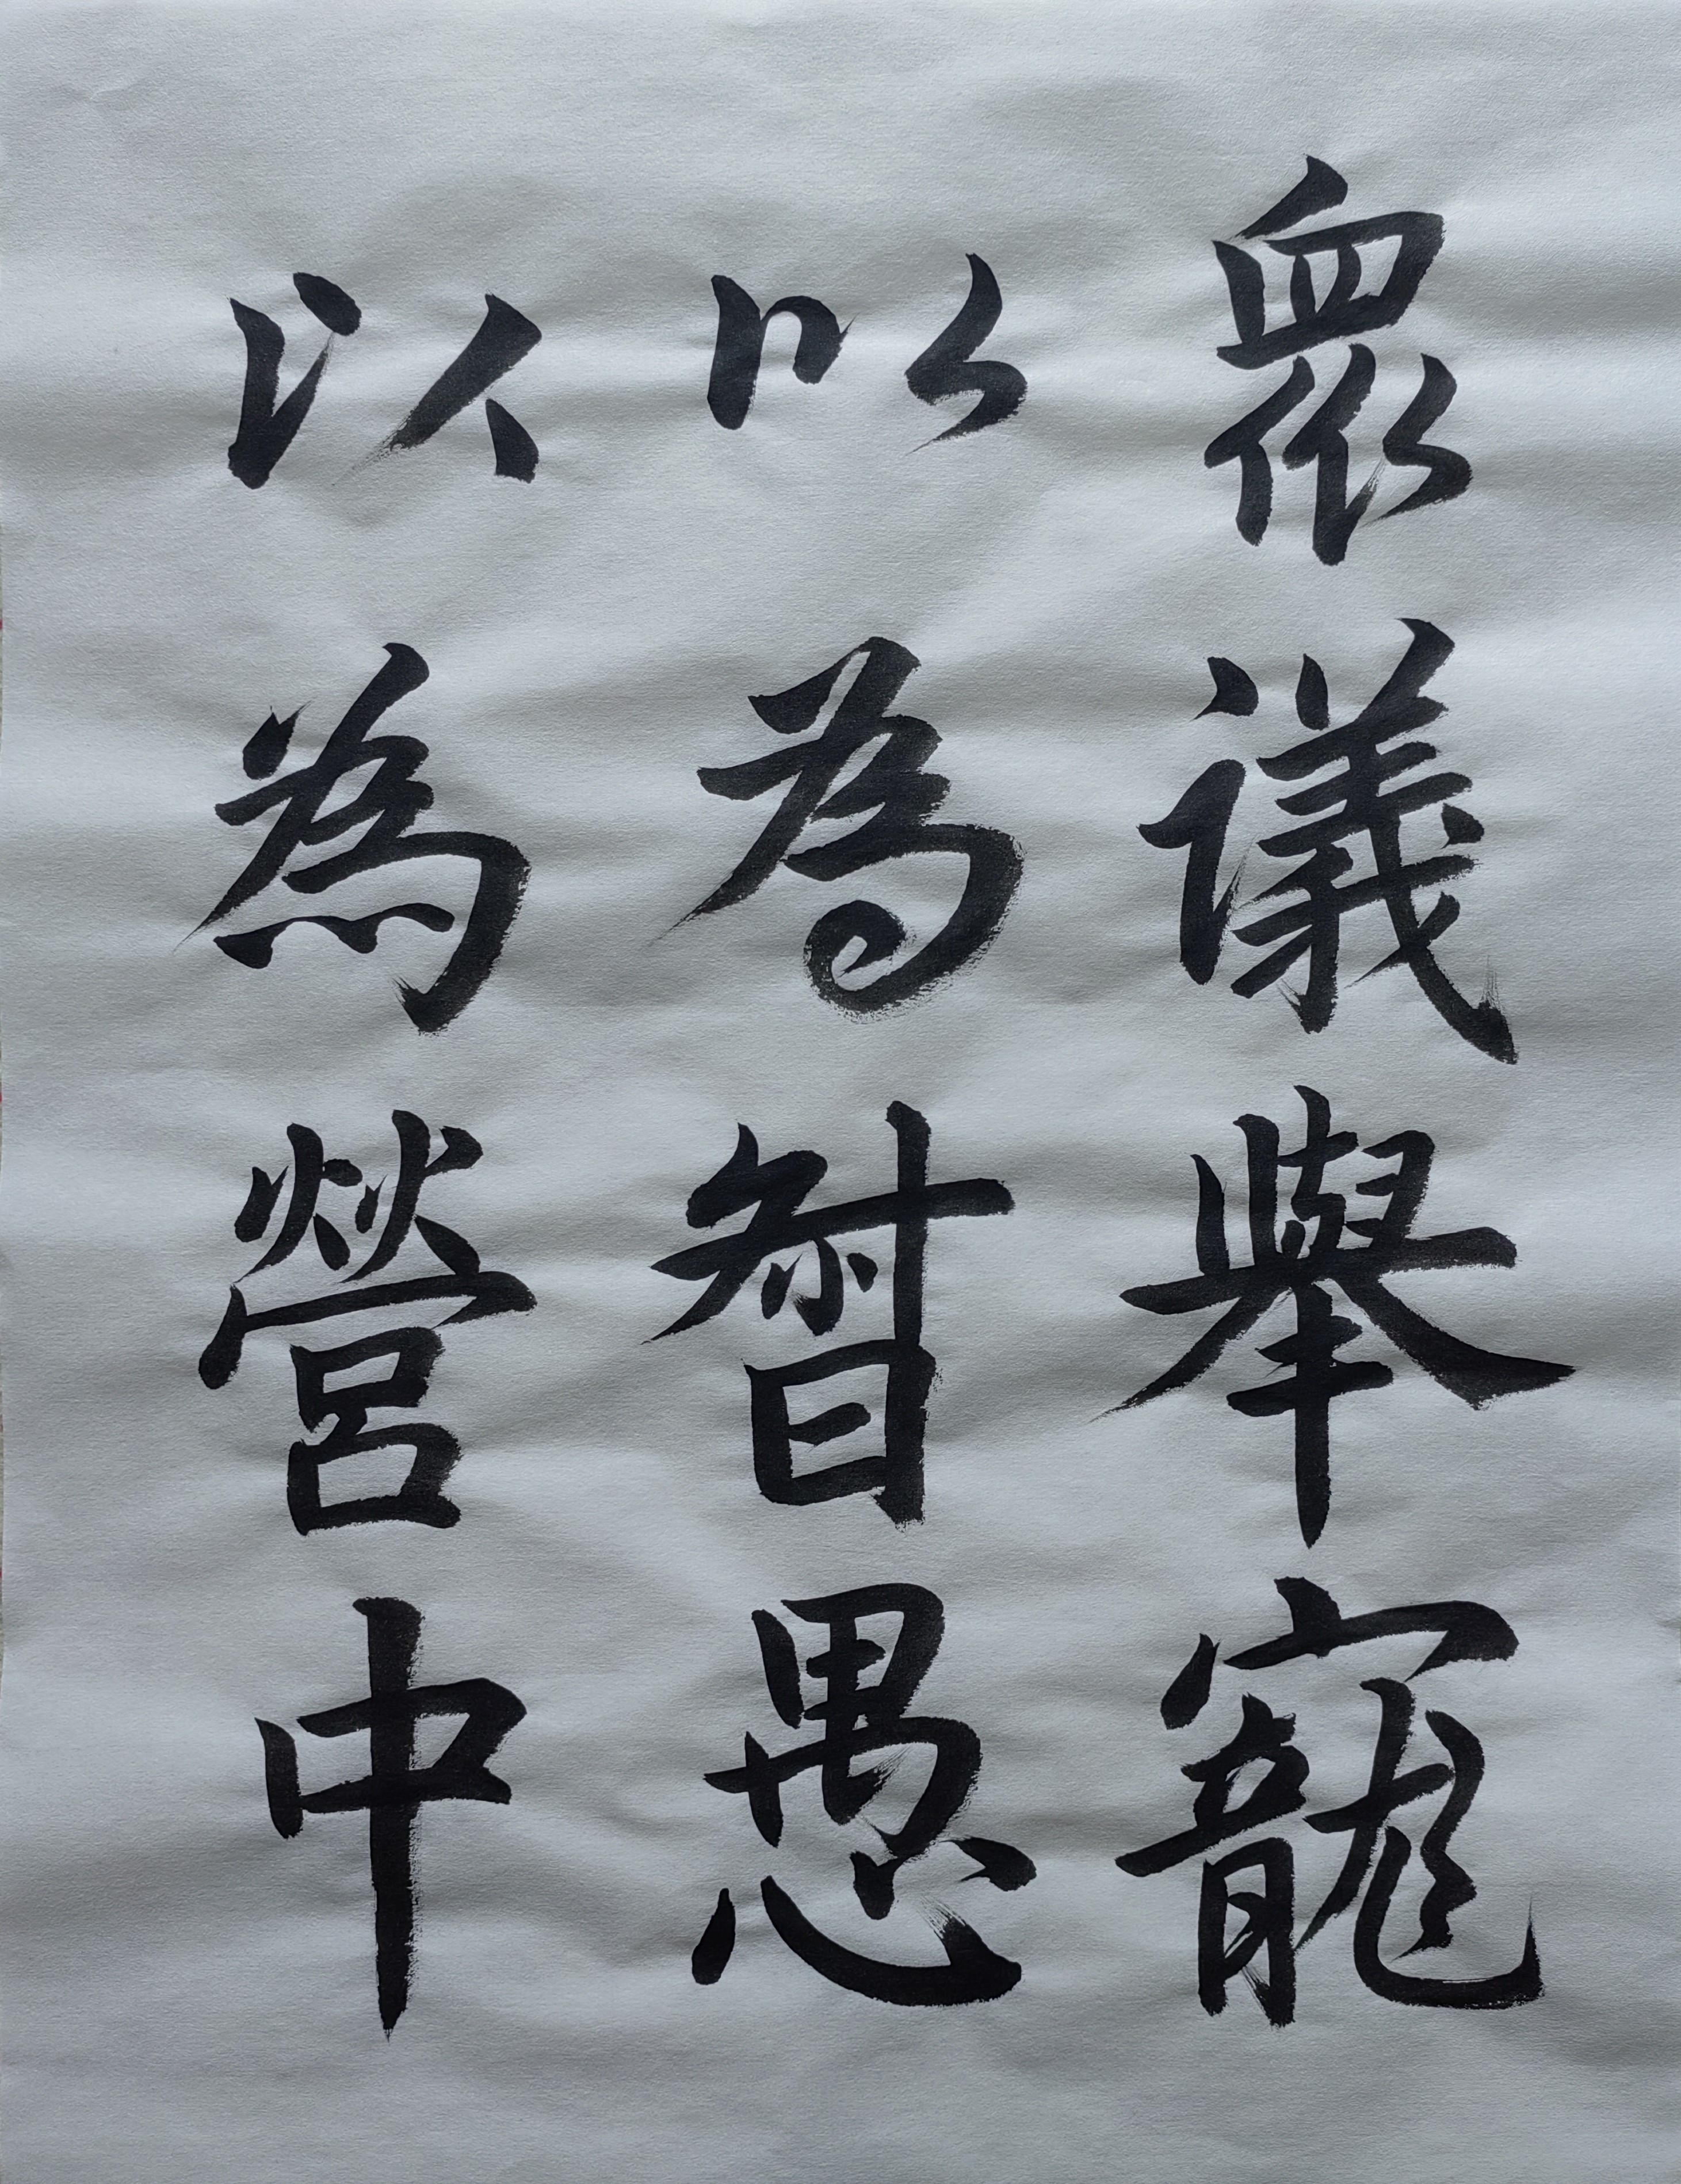 眾議舉寵
以為督愚
以為營中